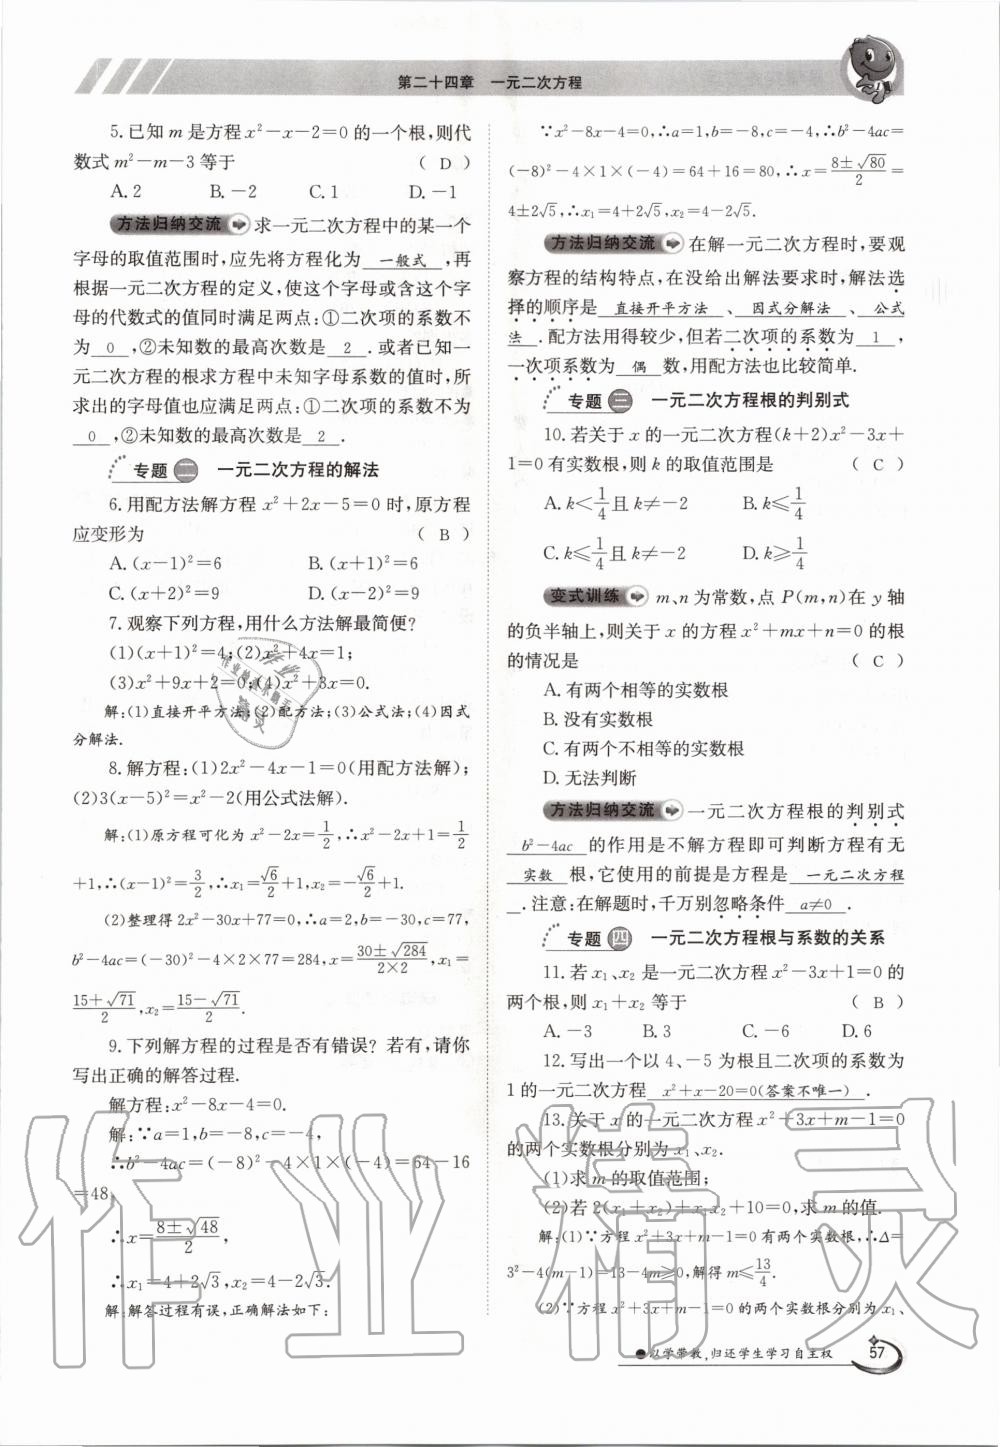 第二十四章 一元二次方程
5.已知 m 是方程 x²-x-2=0 的一个根,则代
数式 m²-m-3 等于 ( D )
A.2 B.-2 C.1 D.-1
方法归纳交流 求一元二次方程中的某一个
字母的取值范围时,应先将方程化为 一般式 ,再
根据一元二次方程的定义,使这个字母或含这个字
母的代数式的值同时满足两点:①二次项的系数不
为 0 ,②未知数的最高次数是 2 .或者已知一
元二次方程的根求方程中未知字母系数的值时,所
求出的字母值也应满足两点:①二次项的系数不为
0 ,②未知数的最高次数是 2 .
专题 二 一元二次方程的解法
6.用配方法解方程 x²+2x-5=0 时,原方程
应变形为 ( B )
A.(x-1)²=6 B.(x+1)²=6
C.(x+2)²=9 D.(x-2)²=9
7.观察下列方程,用什么方法解最简便?
(1)(x+1)²=4;(2)x²+4x=1;
(3)x²+9x+2=0;(4)x²+3x=0.
解:(1)直接开平方法;(2)配方法;(3)公式法;(4)因式
分解法.
8.解方程:(1)2x²-4x-1=0(用配方法解);
(2)3(x-5)²=x²-2(用公式法解).
解:(1)原方程可化为 x²-2x=1/2,∴x²-2x+1=1/2
+1,∴(x-1)²=3/2,∴x₁=√6/2+1,x₂=-√6/2+1.
(2)整理得 2x²-30x+77=0,∴a=2,b=-30,c=77,
b²-4ac=(-30)²-4×2×77=284,x=(30±√284)/(2×2),x₁=
(15+√71)/2,x₂=(15-√71)/2.
9.下列解方程的过程是否有错误?若有,请你
写出正确的解答过程.
解方程:x²-8x-4=0.
解:∵a=1,b=-8,c=-4,
∴b²-4ac=(-8)²-4×1×(-4)=64-16
=48,
∴x=(8±√48)/2,
∴x₁=4+2√3,x₂=4-2√3.
解:解答过程有误,正确解法如下:
∵x²-8x-4=0,∴a=1,b=-8,c=-4,∴b²-4ac=
(-8)²-4×1×(-4)=64+16=80,∴x=(8±√80)/2=
4±2√5,∴x₁=4+2√5,x₂=4-2√5.
方法归纳交流 在解一元二次方程时,要观
察方程的结构特点,在没给出解法要求时,解法选
择的顺序是 直接开平方法 、 因式分解法 、 公式
法 .配方法用得较少,但若二次项的系数为 1 ,
一次项系数为 偶 数,用配方法也比较简单.
专题 三 一元二次方程根的判别式
10.若关于 x 的一元二次方程(k+2)x²-3x+
1=0 有实数根,则 k 的取值范围是 ( C )
A.k<1/4且 k≠-2 B.k≤1/4
C.k≤1/4且 k≠-2 D.k≥1/4
变式训练 m、n 为常数,点 P(m,n)在 y 轴
的负半轴上,则关于 x 的方程 x²+mx+n=0 的根
的情况是 ( C )
A.有两个相等的实数根
B.没有实数根
C.有两个不相等的实数根
D.无法判断
方法归纳交流 一元二次方程根的判别式
b²-4ac 的作用是不解方程即可判断方程有无
实数 根,它使用的前提是方程是 一元二次方程
.注意:在解题时,千万别忽略条件 a≠0 .
专题 四 一元二次方程根与系数的关系
11.若 x₁、x₂ 是一元二次方程 x²-3x+1=0 的
两个根,则 x₁+x₂ 等于 ( B )
A.-3 B.3 C.-6 D.6
12.写出一个以 4、-5 为根且二次项的系数为
1 的一元二次方程 x²+x-20=0(答案不唯一) .
13.关于 x 的一元二次方程 x²+3x+m-1=0
的两个实数根分别为 x₁、x₂.
(1)求 m 的取值范围;
(2)若 2(x₁+x₂)+x₁x₂+10=0,求 m 的值.
解:(1)∵方程 x²+3x+m-1=0 有两个实数根,∴Δ=
3²-4(m-1)=13-4m≥0,解得 m≤13/4.
(2)∵方程 x²+3x+m-1=0 的两个实数根分别为 x₁、
●以学带教,归还学生学习自主权
57
作业精灵